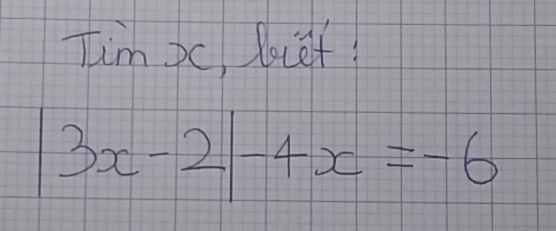 Tìm x, biết :
|3x - 2| - 4x = -6